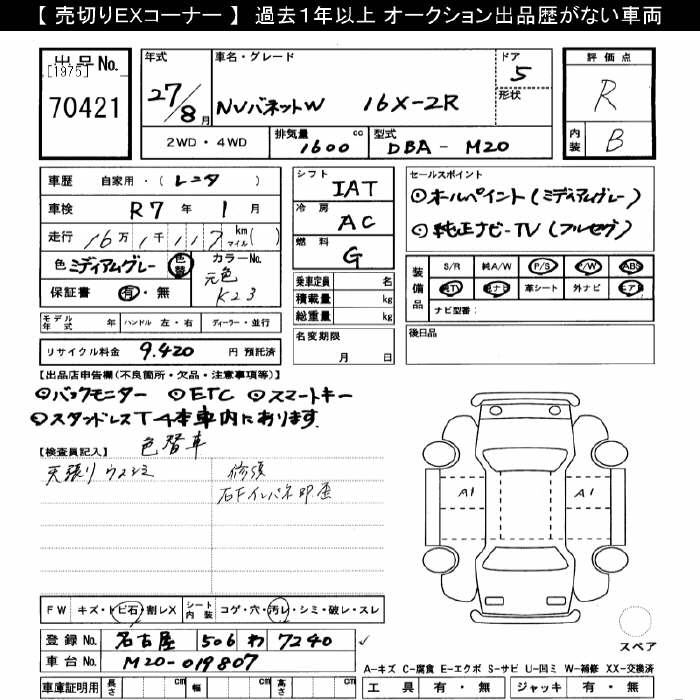 【 売切りEXコーナー 】 過去１年以上 オークション出品歴がない車両
出品No.
[1975]
70421
年式
27/8月
車名・グレード
NVバネットW 16X-2R
ドア
5
形状
2WD・4WD
排気量
1600 cc
型式
DBA-M20
評価点
R
内装
B
車歴 自家用・(レンタ)
車検 R7年 1月
走行 16万 1千 117 km マイル ( )
色 ミディアムグレー 色替
カラーNo.
元色
K23
保証書 有・無
シフト
IAT
冷房
AC
燃料
G
乗車定員 名
積載量 kg
総重量 kg
セールスポイント
⊙オールペイント(ミディアムグレー)
⊙純正ナビ-TV(フルセグ)
装備品
S/R 純A/W P/S P/W ABS
純TV 純ナビ 革シート 外ナビ エアB
ナビ型番:
モデル年式 年 ハンドル 左・右 ディーラー・並行
リサイクル料金 9.420 円 預託済
名変期限
月 日
後日品
【出品店申告欄(不良箇所・欠品・注意事項等)】
⊙バックモニター ⊙ETC ⊙スマートキー
⊙スタッドレスT4本車内にあります
色替車
【検査員記入】
天張りウスシミ
修復
右Fインパネ部歪
A1
A1
FW キズ・トビ石・割レX
シート内装 コゲ・穴・汚レ・シミ・破レ・スレ
登録No. 名古屋 506 わ 7240
車台No. M20-019807
スペア
A-キズ C-腐食 E-エクボ S-サビ U-凹ミ W-補修 XX-交換済
車庫証明用 長さ cm 幅 cm 高さ cm
工具 有・無 ジャッキ 有・無